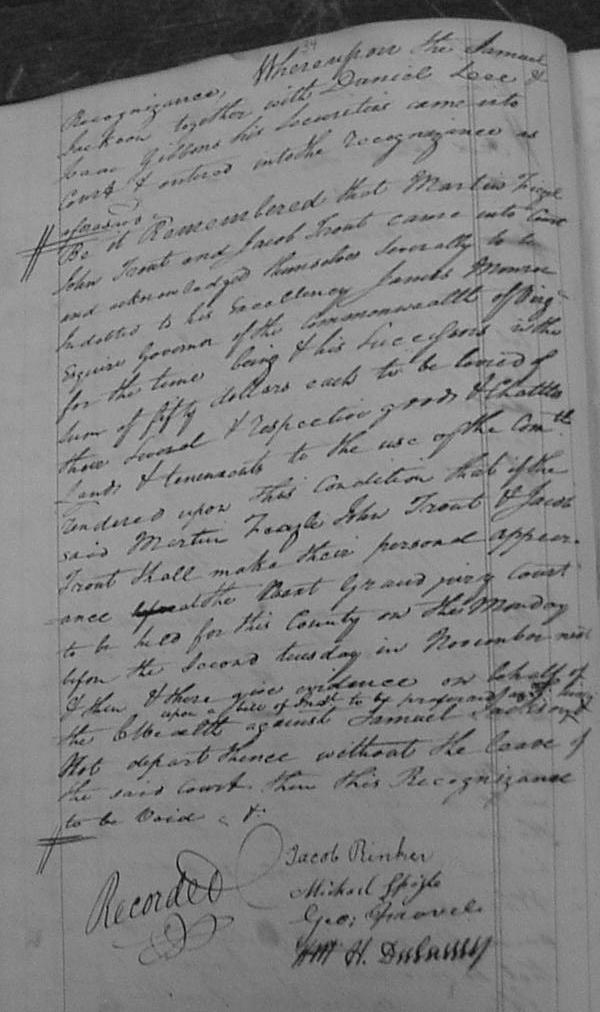 Recognizance, Whereupon the Samuel
Jackson together with Daniel Lee &
Isaac Gibbons his Securities came into
Court & entered into the recognizance as
aforesaid
Be it Remembered that Martin Feagle
John Trout and Jacob Trout came into Court
and acknowledged themselves severally to be
Indebted to his Excellency James Monroe
Esquire Governor of the Commonwealth of Virg
for the time being & his Successors in the
sum of fifty dollars each to be levied of
their several & respective goods & Chattles
Lands & tenements to the use of the Comth
rendered upon this Condition that if the
said Martin Feagle John Trout & Jacob
Trout shall make their personal appear-
ance at the Next Grand jury Court
to be held for this County on the Monday
before the second tuesday in November next
& then & there give evidence on behalf of
upon a bill of Indt to be prefered
the CWealth against Samuel Jackson &
Not depart thence without the leave of
the said Court then this Recognizance
to be Void &
Recorded
Jacob Rinker
Michael Spigle
Geo;
Wm H. Dulaney